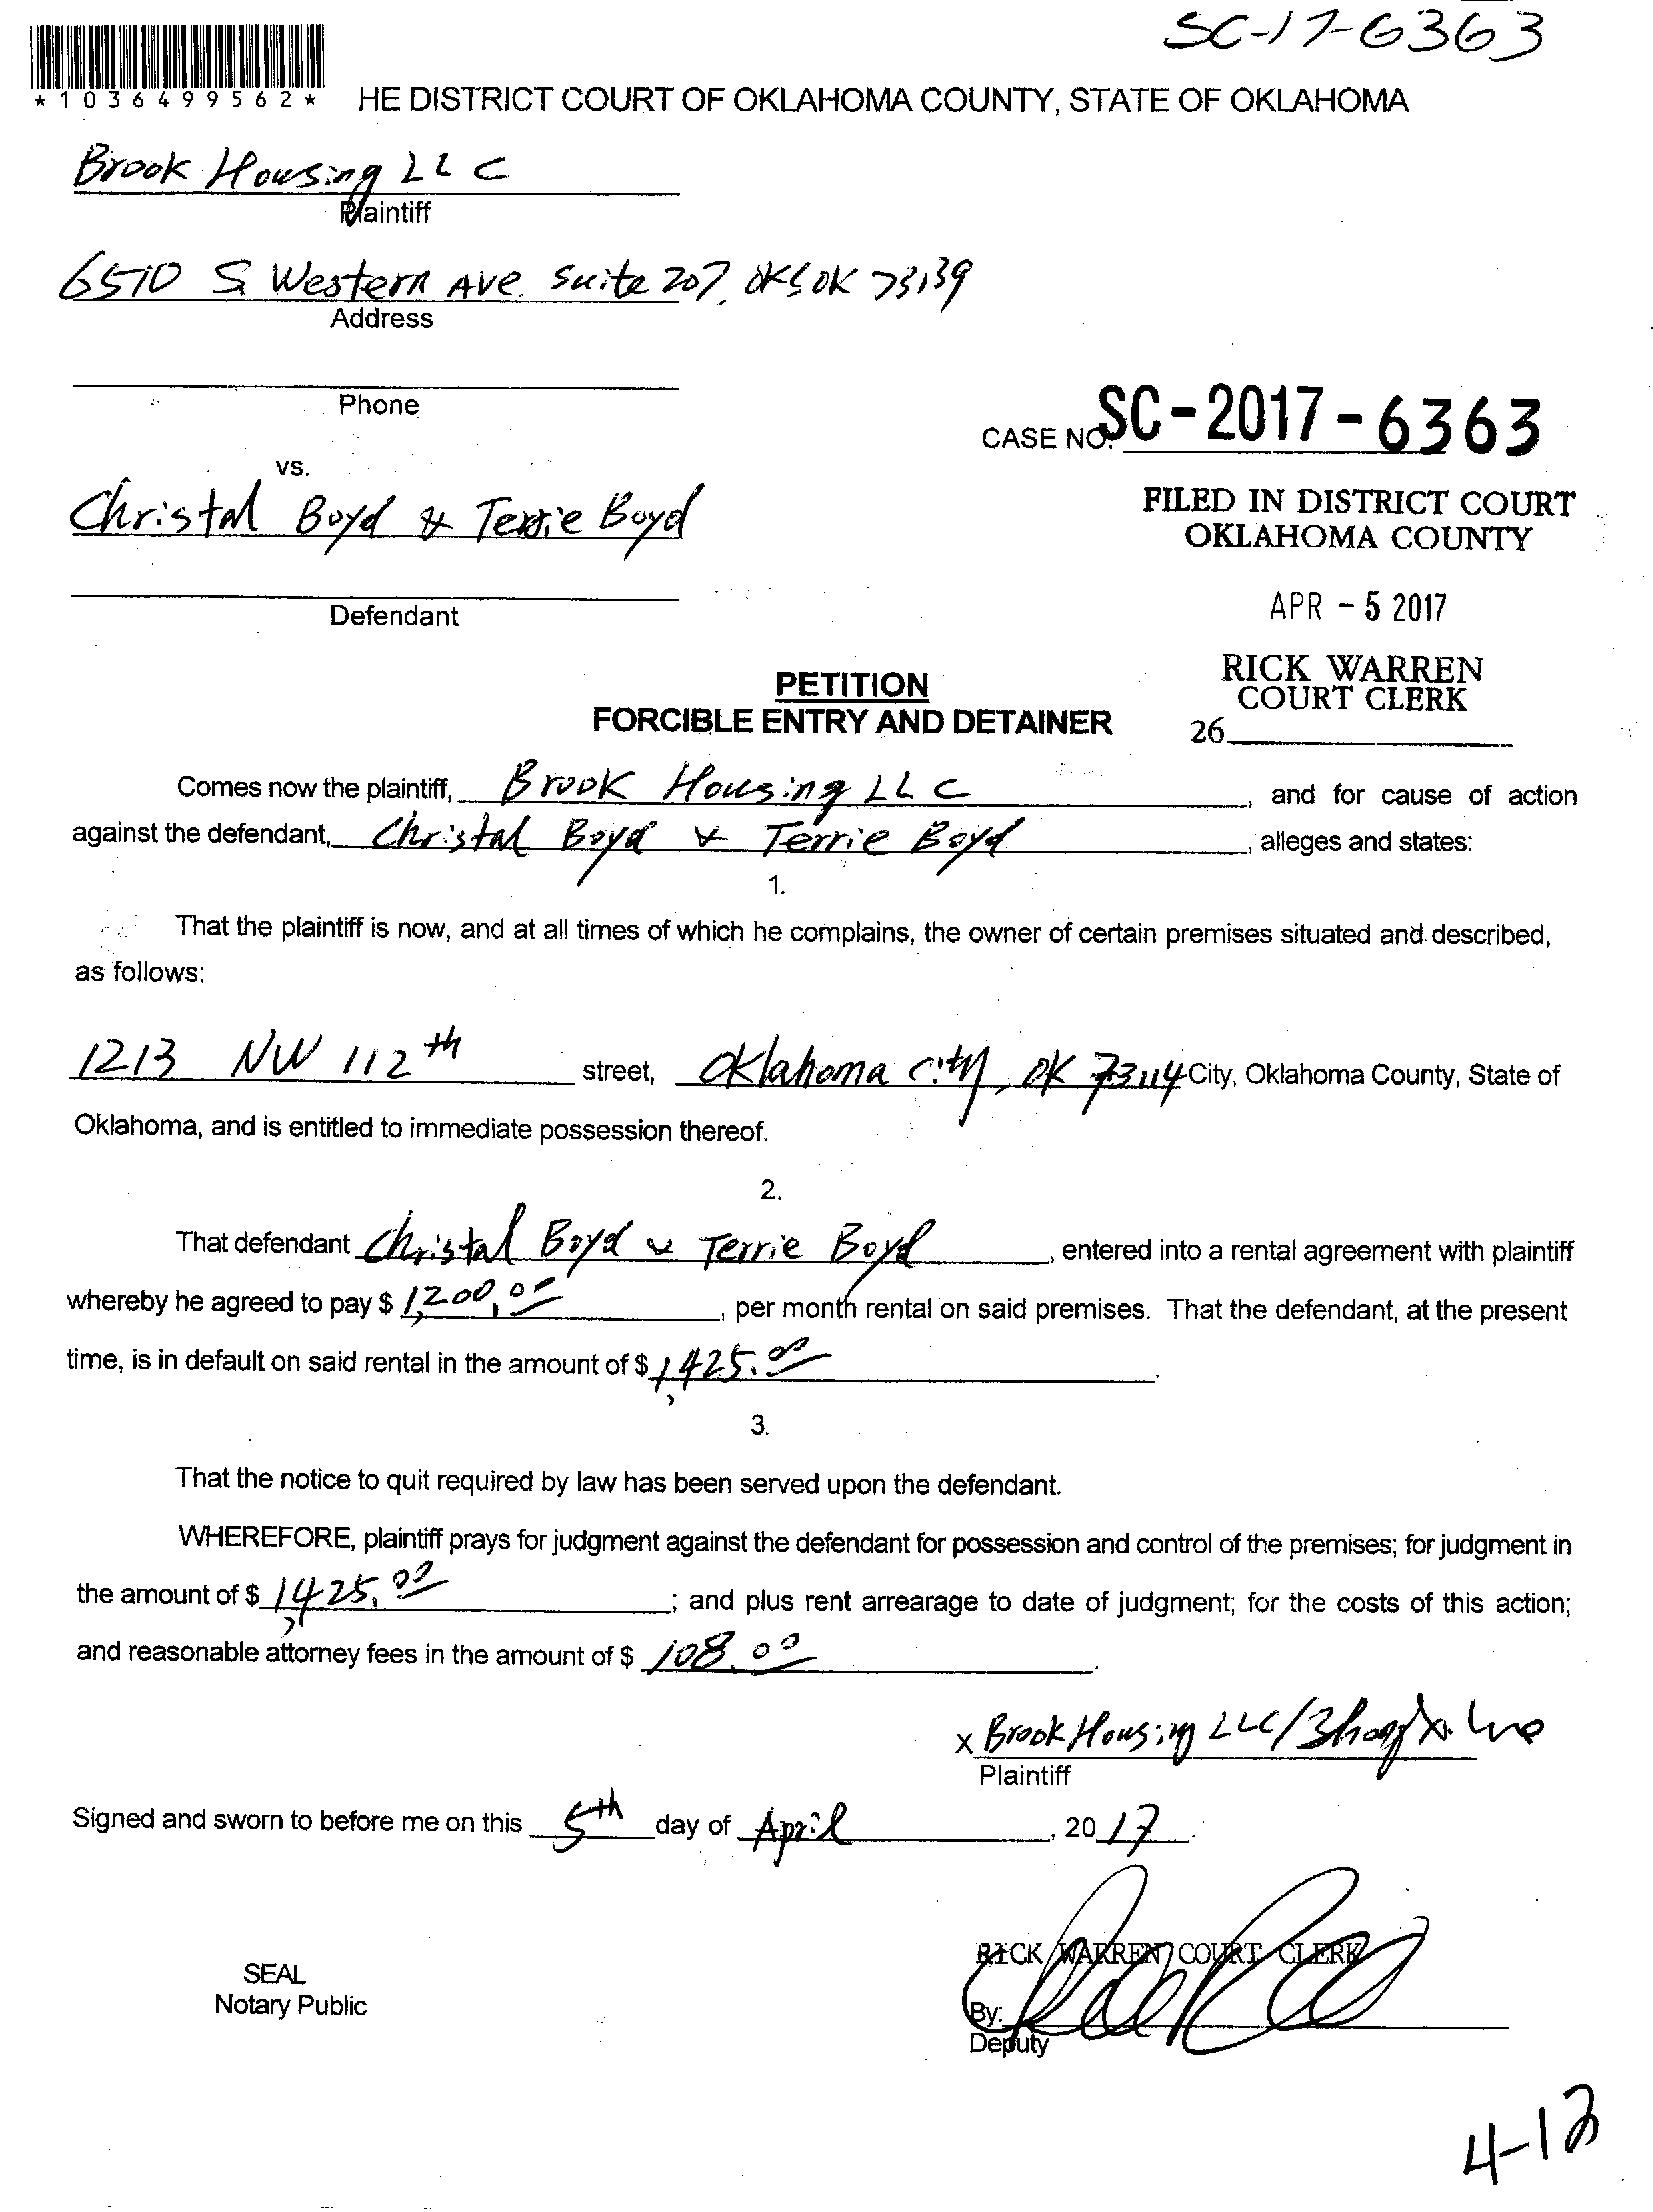 SC-17-6363
*1036499562*
HE DISTRICT COURT OF OKLAHOMA COUNTY, STATE OF OKLAHOMA
Brook Housing LLC
Plaintiff
6510 S. Western Ave. Suite 207, OKC OK 73139
Address
Phone
CASE NO. SC-2017-6363
vs.
Christal Boyd & Terrie Boyd
FILED IN DISTRICT COURT
OKLAHOMA COUNTY
Defendant
APR - 5 2017
RICK WARREN
COURT CLERK
26
PETITION
FORCIBLE ENTRY AND DETAINER
Comes now the plaintiff, Brook Housing LLC, and for cause of action
against the defendant, Christal Boyd & Terrie Boyd, alleges and states:
1.
That the plaintiff is now, and at all times of which he complains, the owner of certain premises situated and described,
as follows:
1213 NW 112th street, Oklahoma City, OK 73114 City, Oklahoma County, State of
Oklahoma, and is entitled to immediate possession thereof.
2.
That defendant Christal Boyd & Terrie Boyd, entered into a rental agreement with plaintiff
whereby he agreed to pay $ 1,200.00, per month rental on said premises. That the defendant, at the present
time, is in default on said rental in the amount of $ 1,425.00.
3.
That the notice to quit required by law has been served upon the defendant.
WHEREFORE, plaintiff prays for judgment against the defendant for possession and control of the premises; for judgment in
the amount of $ 1,425.00; and plus rent arrearage to date of judgment; for the costs of this action;
and reasonable attorney fees in the amount of $ 108.00.
x Brook Housing LLC/
Plaintiff
Signed and sworn to before me on this 5th day of April, 2017.
RICK WARREN COURT CLERK
SEAL
Notary Public
By:
Deputy
4-12